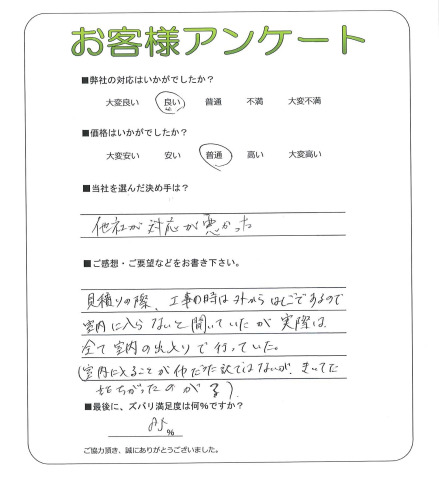 お客様アンケート
■弊社の対応はいかがでしたか？
大変良い 良い 普通 不満 大変不満
■価格はいかがでしたか？
大変安い 安い 普通 高い 大変高い
■当社を選んだ決め手は？
他社が対応が悪かった
■ご感想・ご要望などをお書き下さい。
見積りの際、工事の時は外からはしごであるので
室内に入らないと聞いていたが実際は
全て室内の出入りで行っていた。
(室内に入ることが
■最後に、ズバリ満足度は何％ですか？
%
ご協力頂き、誠にありがとうございました。